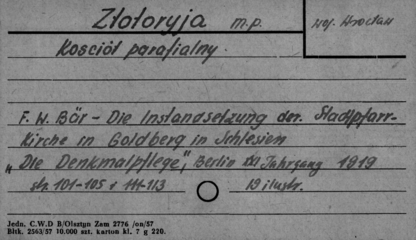 Złotoryja m.p. woj. Wrocław
Kościół parafialny.
F. W. Bär - Die Instandsetzung der. Stadtpfarr-
Kirche in Goldberg in Schlesien
"Die Denkmalpflege", Berlin XXI Jahrgang 1919
str. 101-105 i 111-113 19 ilustr.
Jedn. C.W.D B/Olsztyn Zam 2776 /on/57
Bltk. 2563/57 10.000 szt. karton kl. 7 g 220.